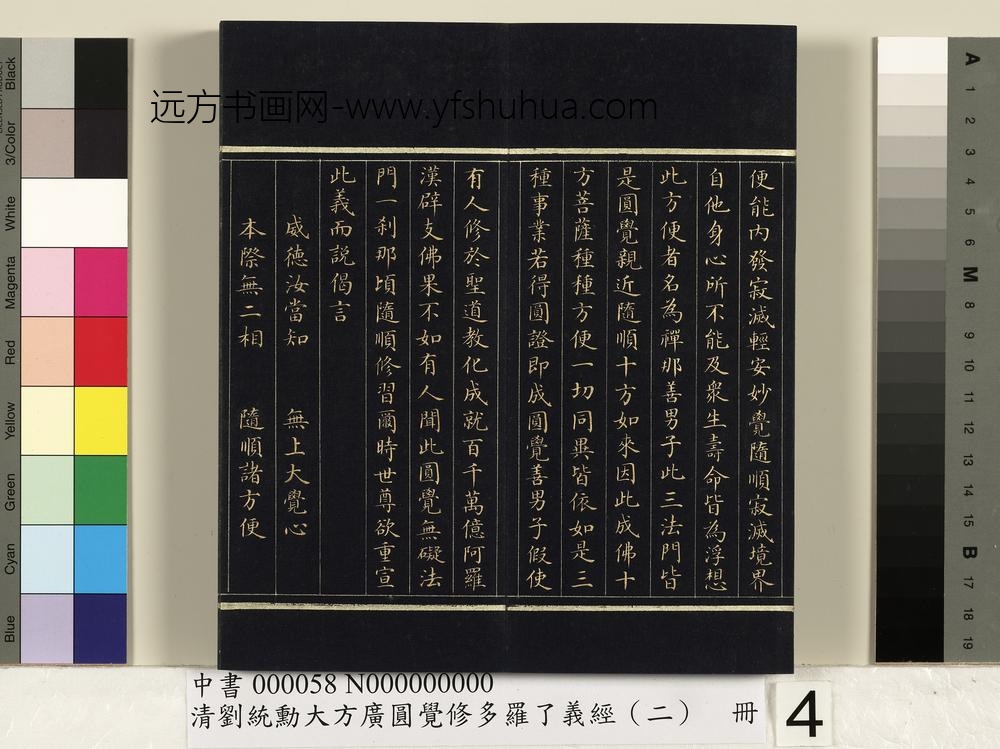 远方书画网-www.yfshuhua.com
便能内發寂滅輕安妙覺隨順寂滅境界
自他身心所不能及衆生壽命皆為浮想
此方便者名為禪那善男子此三法門皆
是圓覺親近隨順十方如來因此成佛十
方菩薩種種方便一切同異皆依如是三
種事業若得圓證即成圓覺善男子假使
有人修於聖道教化成就百千萬億阿羅
漢辟支佛果不如有人聞此圓覺無礙法
門一刹那頃隨順修習爾時世尊欲重宣
此義而説偈言
威德汝當知 無上大覺心
本際無二相 隨順諸方便
Black
3/Color
White
Magenta
Red
Yellow
Green
Cyan
Blue
A
1
2
3
4
5
6
M
8
9
10
11
12
13
14
15
B
17
18
19
中書 000058 N000000000
清劉統勳大方廣圓覺修多羅了義經（二） 冊
4